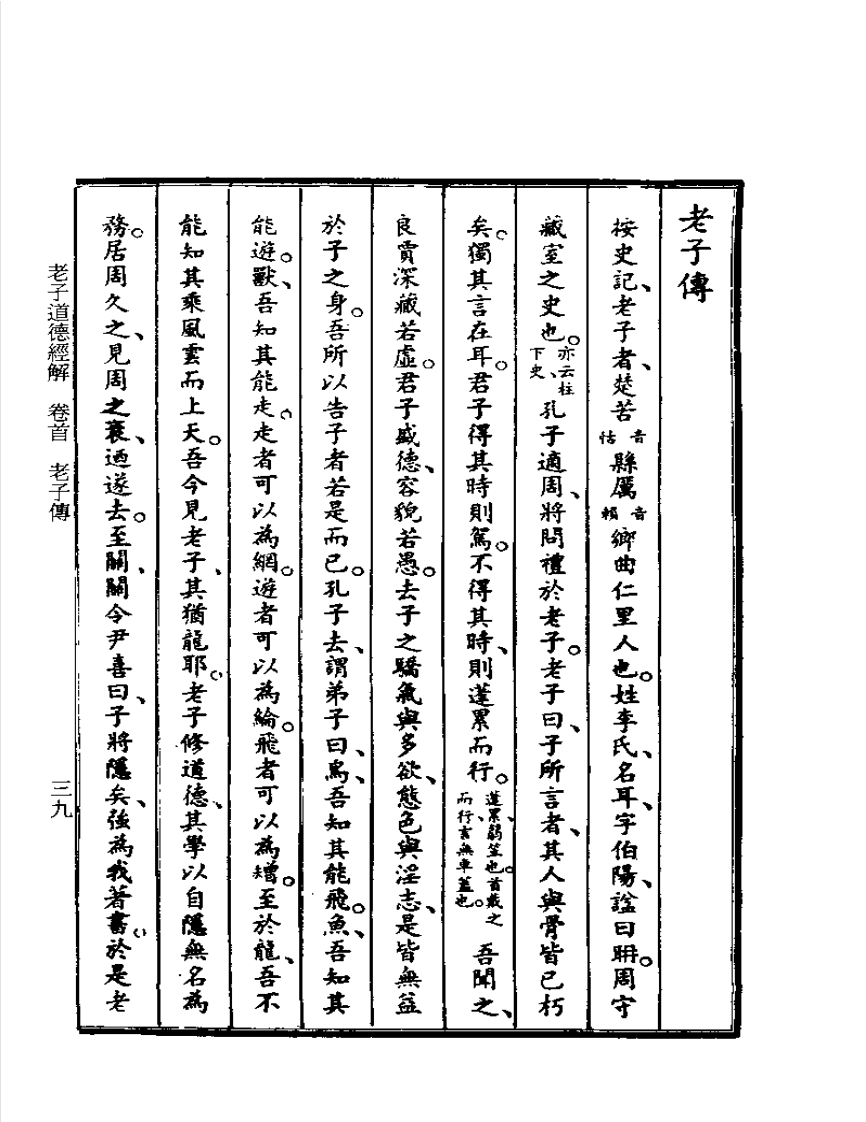 老子傳
按史記、老子者、楚苦音怙縣厲音賴鄉曲仁里人也。姓李氏、名耳、字伯陽、諡曰聃。周守
藏室之史也。亦云柱下史、孔子適周、將問禮於老子。老子曰、子所言者、其人與骨皆已朽
矣。獨其言在耳。君子得其時則駕。不得其時、則蓬累而行。蓬累、蒻笠也。首戴之而行、言無車蓋也。吾聞之、
良賈深藏若虛。君子盛德、容貌若愚。去子之驕氣與多欲、態色與淫志、是皆無益
於子之身。吾所以告子者若是而已。孔子去、謂弟子曰、鳥、吾知其能飛。魚、吾知其
能遊。獸、吾知其能走。走者可以為網。遊者可以為綸。飛者可以為矰。至於龍、吾不
能知其乘風雲而上天。吾今見老子、其猶龍耶。老子修道德、其學以自隱無名為
務。居周久之、見周之衰、迺遂去。至關、關令尹喜曰、子將隱矣、強為我著書。於是老
老子道德經解　卷首　老子傳
三九